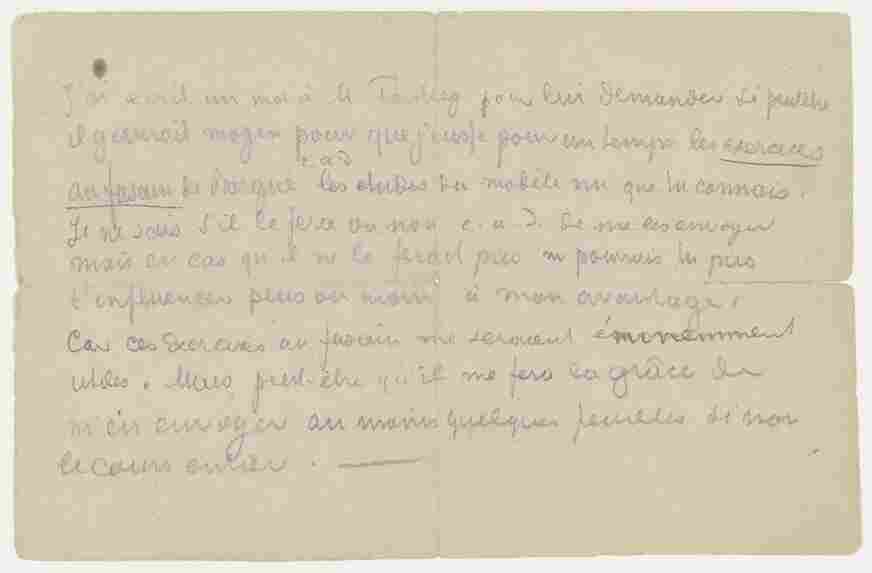 J'ai écrit un mot à M Tersteeg pour lui demander si peutêtre
il y aurait moyen pour que j'eusse pour un temps les exercices
c.a.d.
au fusain de Bargue les études du modèle nu que tu connais.
Je ne sais s'il le fera ou non c.a.d. de me les envoyer
mais en cas qu'il ne le ferait pas ne pourrais tu pas
t'influencer plus ou moins à mon avantage.
Car ces exercices au fusain me seraient éminemment
utiles. Mais peut-être qu'il me fera la grâce de
m'en envoyer au moins quelques feuilles si non
le cours entier. —